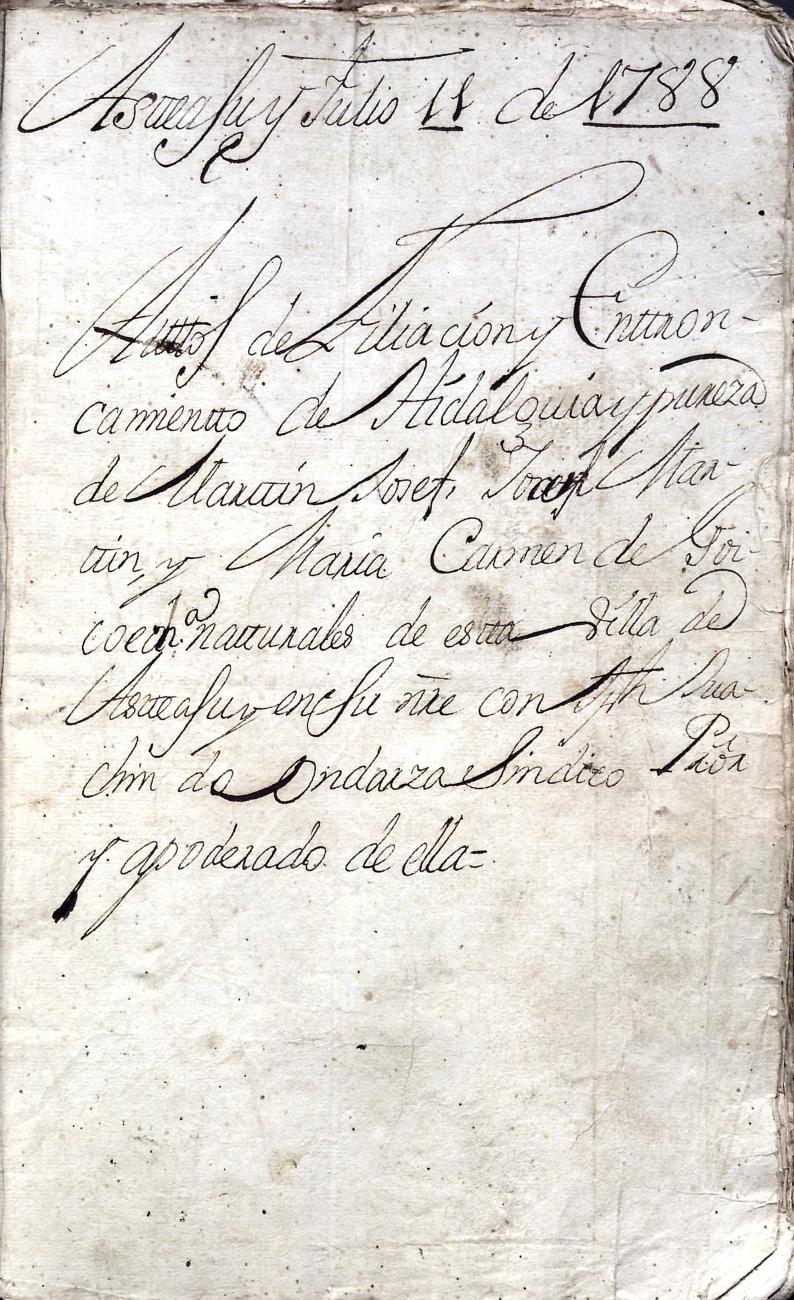 Astteasu y Julio 11 de 1788
Auttos de Filiación y Enttron-
camientto de Hidalguia y pureza
de Marttin Josef, Josef Mar-
ttin, y María Carmen de Goi-
coechª natturales de estta Villa de
Astteasu y en su nre con Jph Jua-
chin de Ondarza Sindico Pror
y apoderado de ella=